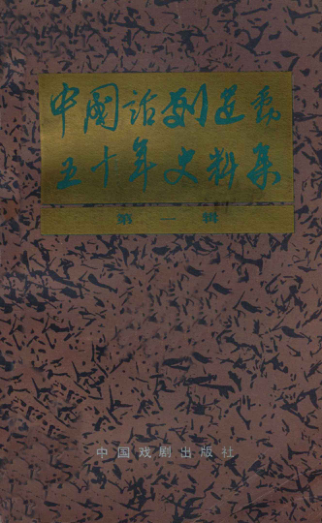 中國话剧运动
五十年史料集
第一辑
中国戏剧出版社